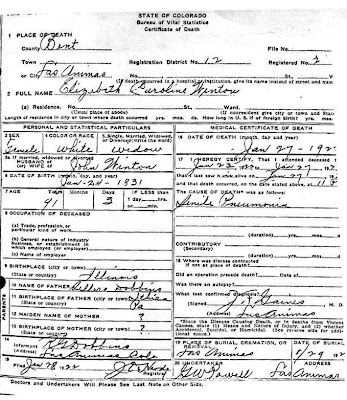 STATE OF COLORADO
Bureau of Vital Statistics
Certificate of Death
1 PLACE OF DEATH
County Bent
State
File No.
Town
Registration District No. 12
Registered No. 2
or
City Las Animas No. St., V
(If death occurred in a hospital or institution, give its name instead of street and num
2 FULL NAME Elizabeth Caroline Winton
(a) Residence. No. St., Ward.
(Usual place of abode) (If nonresident give city or town and Stat
Length of residence in city or town where death occurred yrs. mos. ds. How long in U. S. if of foreign birth? yrs. mos.
PERSONAL AND STATISTICAL PARTICULARS
3 SEX
Female
4 COLOR OR RACE
White
5 Single, Married, Widowed, or Divorced (write the word)
widow
5a If married, widowed or divorced
HUSBAND of
(or) WIFE of John Winton
6 DATE OF BIRTH (month, day, and year)
Jan-24-1831
7 AGE Years Months Days IF LESS than
91 3 1 day hrs.
or min.
8 OCCUPATION OF DECEASED
(a) Trade, profession, or
particular kind of work
(b) General nature of industry
business, or establishment in
which employed (or employer)
(c) Name of employer
9 BIRTHPLACE (city or town)
(State or country) Illinois
PARENTS
10 NAME OF FATHER Dobbins
11 BIRTHPLACE OF FATHER (city or town)
(State or country)
12 MAIDEN NAME OF MOTHER ?
13 BIRTHPLACE OF MOTHER (city or town) ?
(State or country)
14
Informant R G Dobbins
(Address) Las Animas Colo
15
Filed Jan 28 1922
Registrar
MEDICAL CERTIFICATE OF DEATH
16 DATE OF DEATH (month, day, and year)
Jan 27-192
17 I HEREBY CERTIFY, That I attended deceased f
that I last saw h alive on Jan 27
and that death occurred, on the date stated above, at 11
The CAUSE OF DEATH* was as follows:
Senile Pneumonia
(duration) yrs. mos.
CONTRIBUTORY
(Secondary)
(duration) yrs. mos.
18 Where was disease contracted
if not at place of death?
Did an operation precede death? Date of
Was there an autopsy?
What test confirmed diagnosis?
(Signed) Haines M. D.
(Address) Las Animas
*State the Disease Causing Death, or in deaths from Violent
Causes, state (1) Means and Nature of Injury, and (2) whether
Accidental, Suicidal, or Homicidal. (See reverse side for additional
space.)
19 PLACE OF BURIAL, CREMATION, OR REMOVAL
Las Animas
DATE OF BURIAL
1/29
20 UNDERTAKER
G W Powell
ADDRESS
Las Animas
Doctors and Undertakers Will Please See Last Note on Other Side.